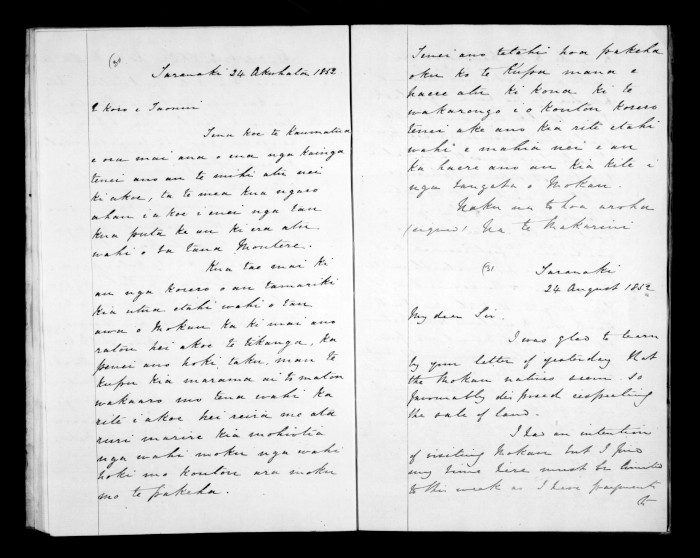 Taranaki 24 Akuhata 1852
E koro e Taonui
Tena koe te kaumatua
e ora mai ana o ena nga kainga
tenei ano au te mihi atu nei
ki a koe, ta te mea kua ngaro
ahau i a koe i enei nga tau
kua puta ke au ki era atu
wahi o Sa Tana Montere.
Kua tae mai ki
au nga korero o au tamariki
kia utua etahi wahi o tau
awa o Mokau ka ki mai ano
ratou hei a koe te tikanga, ka
penei ano hoki taku, mau te
kupu kia marama ai to matou
wakaaro mo tena wahi ka
rite i a koe hei reira mo ata
ruri marire kia mohiotia
nga wahi moku nga wahi
hoki mo koutou ara moku
mo te pakeha.
Tenei ano tetahi hoa pakeha
oku ko te Kupa mana e
haere atu ki kona ki te
wakarongo i o koutou korero
tenei ake ano kia rite etahi
wahi e mahia nei e au
ka haere ano au kia kite i
nga tangata o Mokau.
Naku na to hoa aroha
(signed) Na te Makarini
(3)
Taranaki
24 August 1852
My dear Sir.
I was glad to learn
by your letter of yesterday that
the Mokau natives seem so
favorably disposed respecting
the sale of land.
I had an intention
of visiting Mokau but I find
my time here must be limited
to this week as I have payments